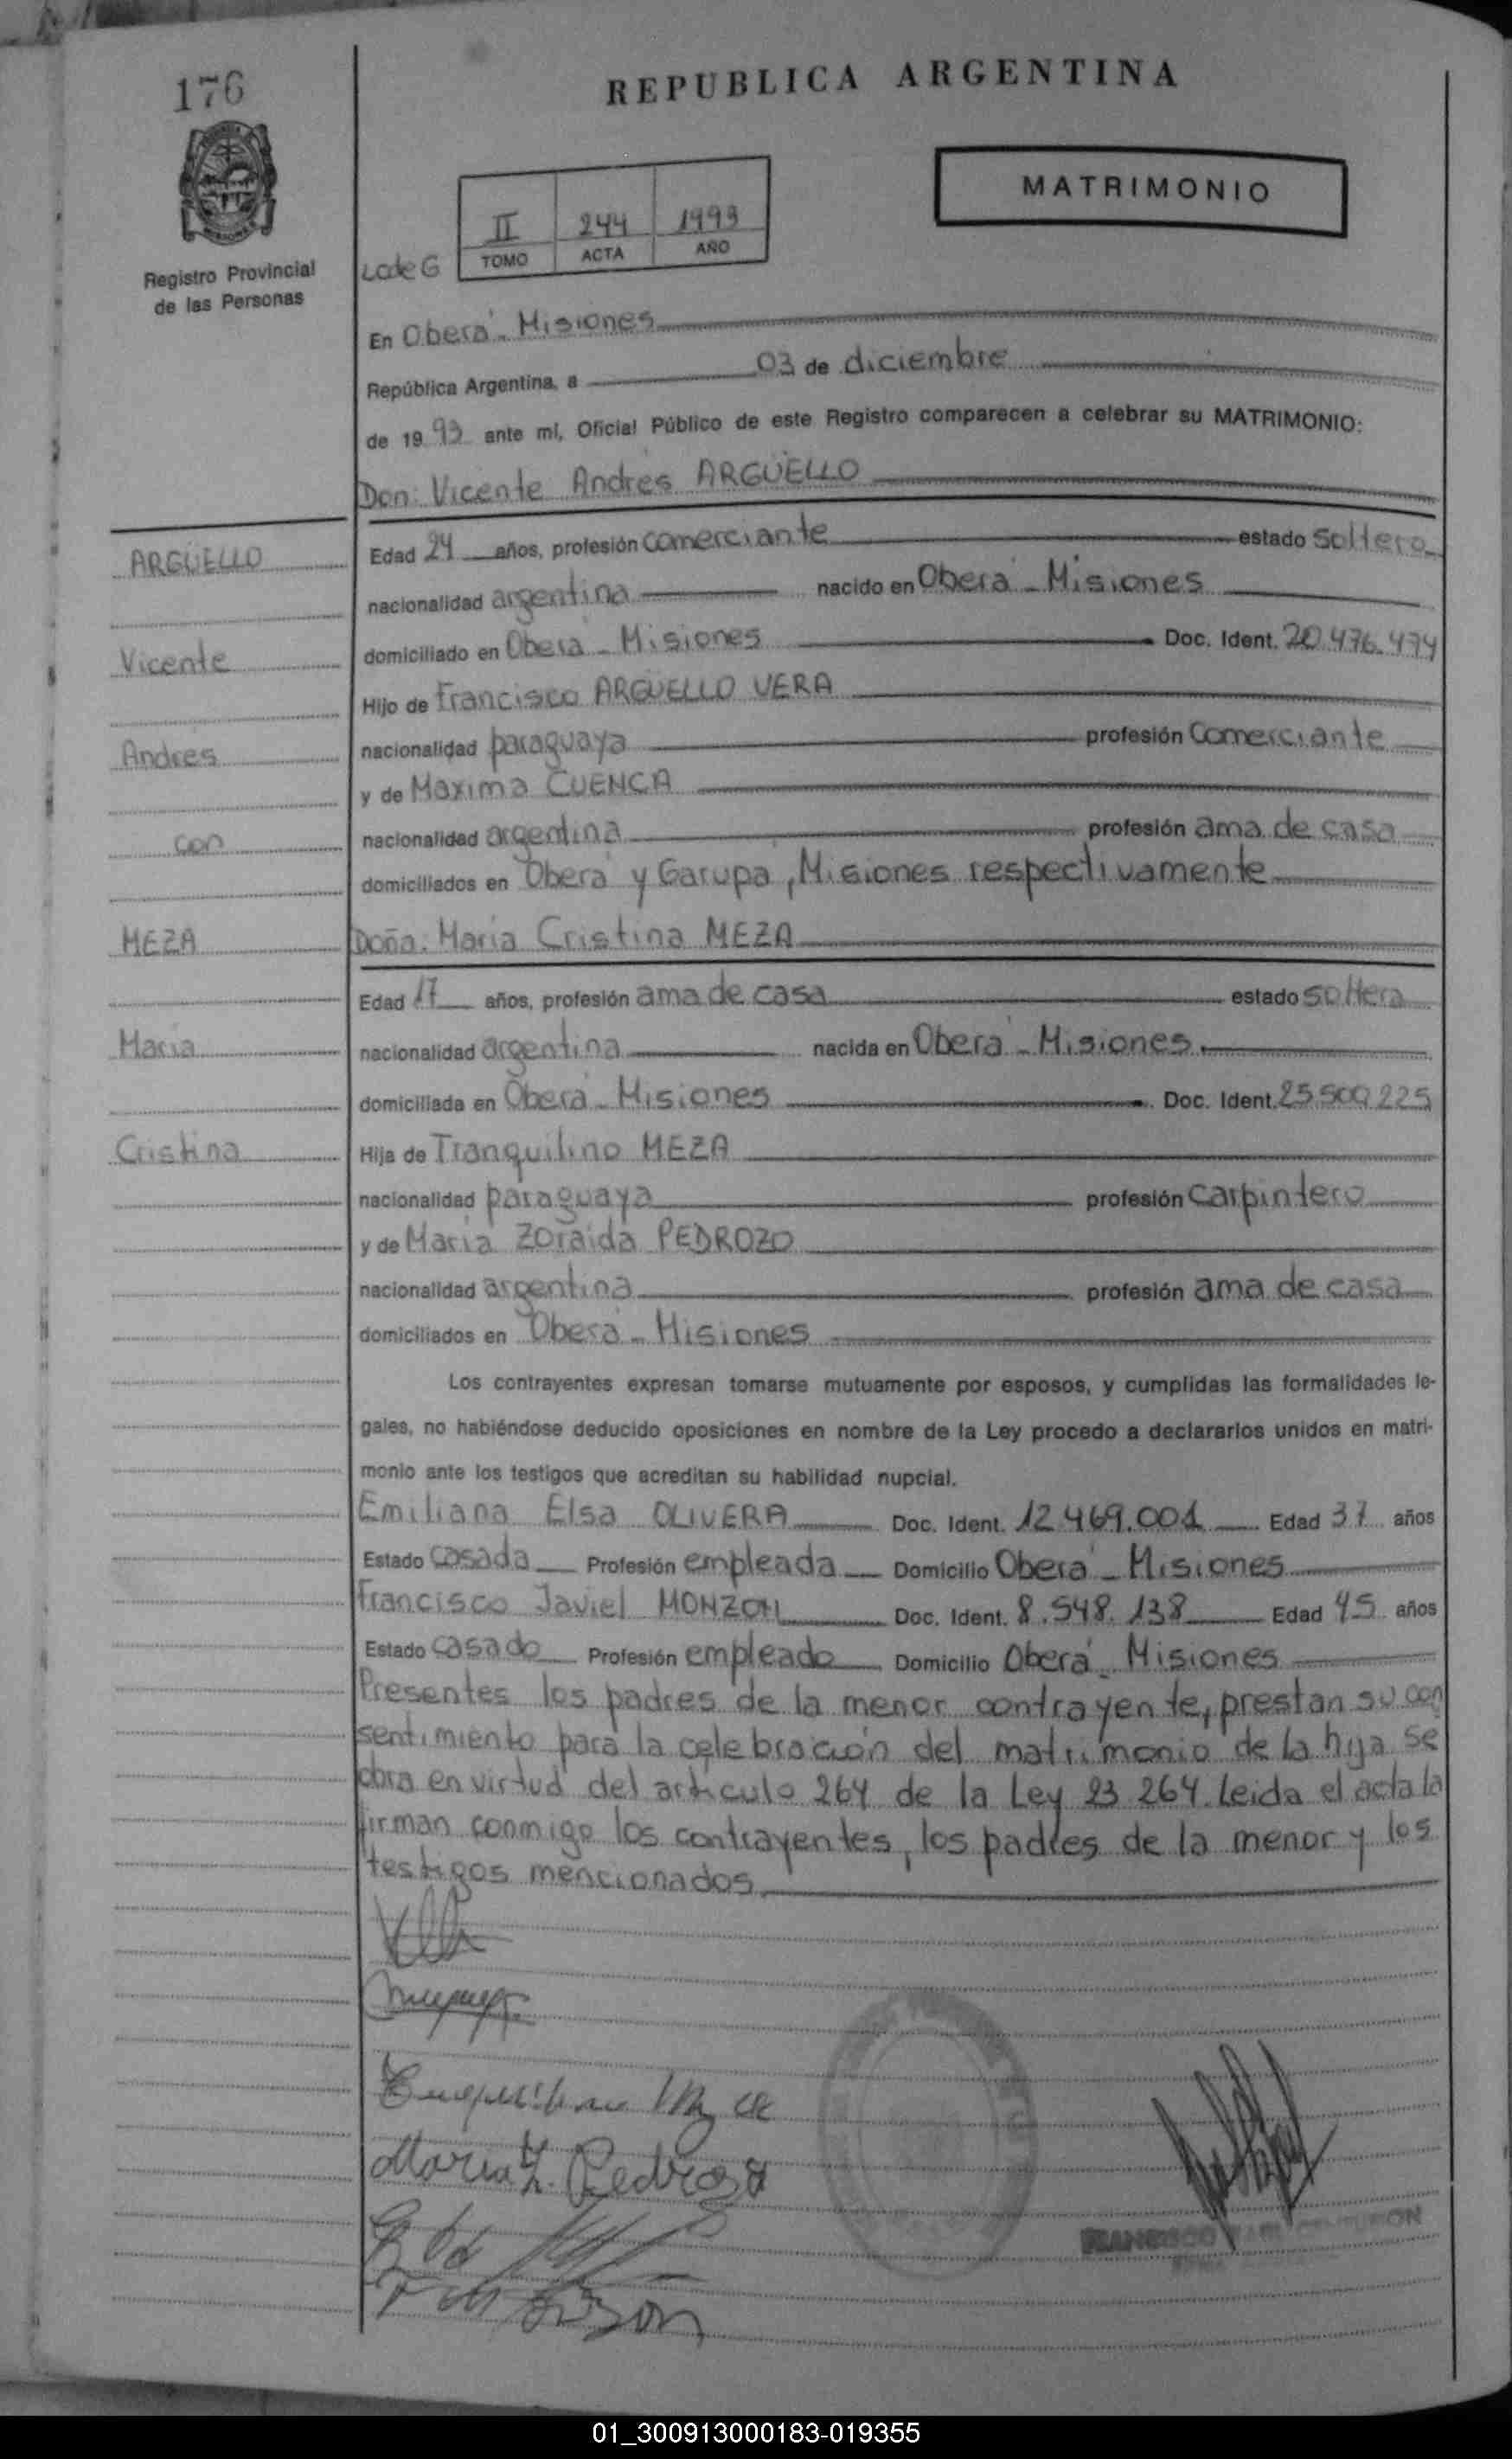 176
REPUBLICA ARGENTINA
MATRIMONIO
II 244 1993
TOMO ACTA AÑO
Registro Provincial
de las Personas
En Oberá - Misiones
República Argentina, a 03 de diciembre
de 1993 ante mí, Oficial Público de este Registro comparecen a celebrar su MATRIMONIO:
Don: Vicente Andrés ARGÜELLO
ARGÜELLO
Edad 24 años, profesión comerciante estado soltero
nacionalidad argentina nacido en Oberá - Misiones
Vicente
domiciliado en Oberá - Misiones Doc. Ident. 20.476.474
Hijo de Francisco ARGÜELLO VERA
Andrés
nacionalidad paraguaya profesión Comerciante
y de Máxima CUENCA
con
nacionalidad argentina profesión ama de casa
domiciliados en Oberá y Garupá, Misiones respectivamente
MEZA
Doña: María Cristina MEZA
Edad 17 años, profesión ama de casa estado soltera
María
nacionalidad argentina nacida en Oberá - Misiones
domiciliada en Oberá - Misiones Doc. Ident. 25.500.225
Cristina
Hija de Tranquilino MEZA
nacionalidad paraguaya profesión Carpintero
y de María Zoraida PEDROZO
nacionalidad argentina profesión ama de casa
domiciliados en Oberá - Misiones
Los contrayentes expresan tomarse mutuamente por esposos, y cumplidas las formalidades le-
gales, no habiéndose deducido oposiciones en nombre de la Ley procedo a declararlos unidos en matri-
monio ante los testigos que acreditan su habilidad nupcial.
Emiliana Elsa OLIVERA Doc. Ident. 12.469.001 Edad 37 años
Estado casada Profesión empleada Domicilio Oberá - Misiones
Francisco Javiel MONZON Doc. Ident. 8.548.138 Edad 45 años
Estado casado Profesión empleado Domicilio Oberá - Misiones
Presentes los padres de la menor contrayente, prestan su con
sentimiento para la celebración del matrimonio de la hija se
obra en virtud del artículo 264 de la Ley 23.264. Leida el acta la
firman conmigo los contrayentes, los padres de la menor y los
testigos mencionados
Maria Z. Pedrozo
FRANCISCO
01_300913000183-019355